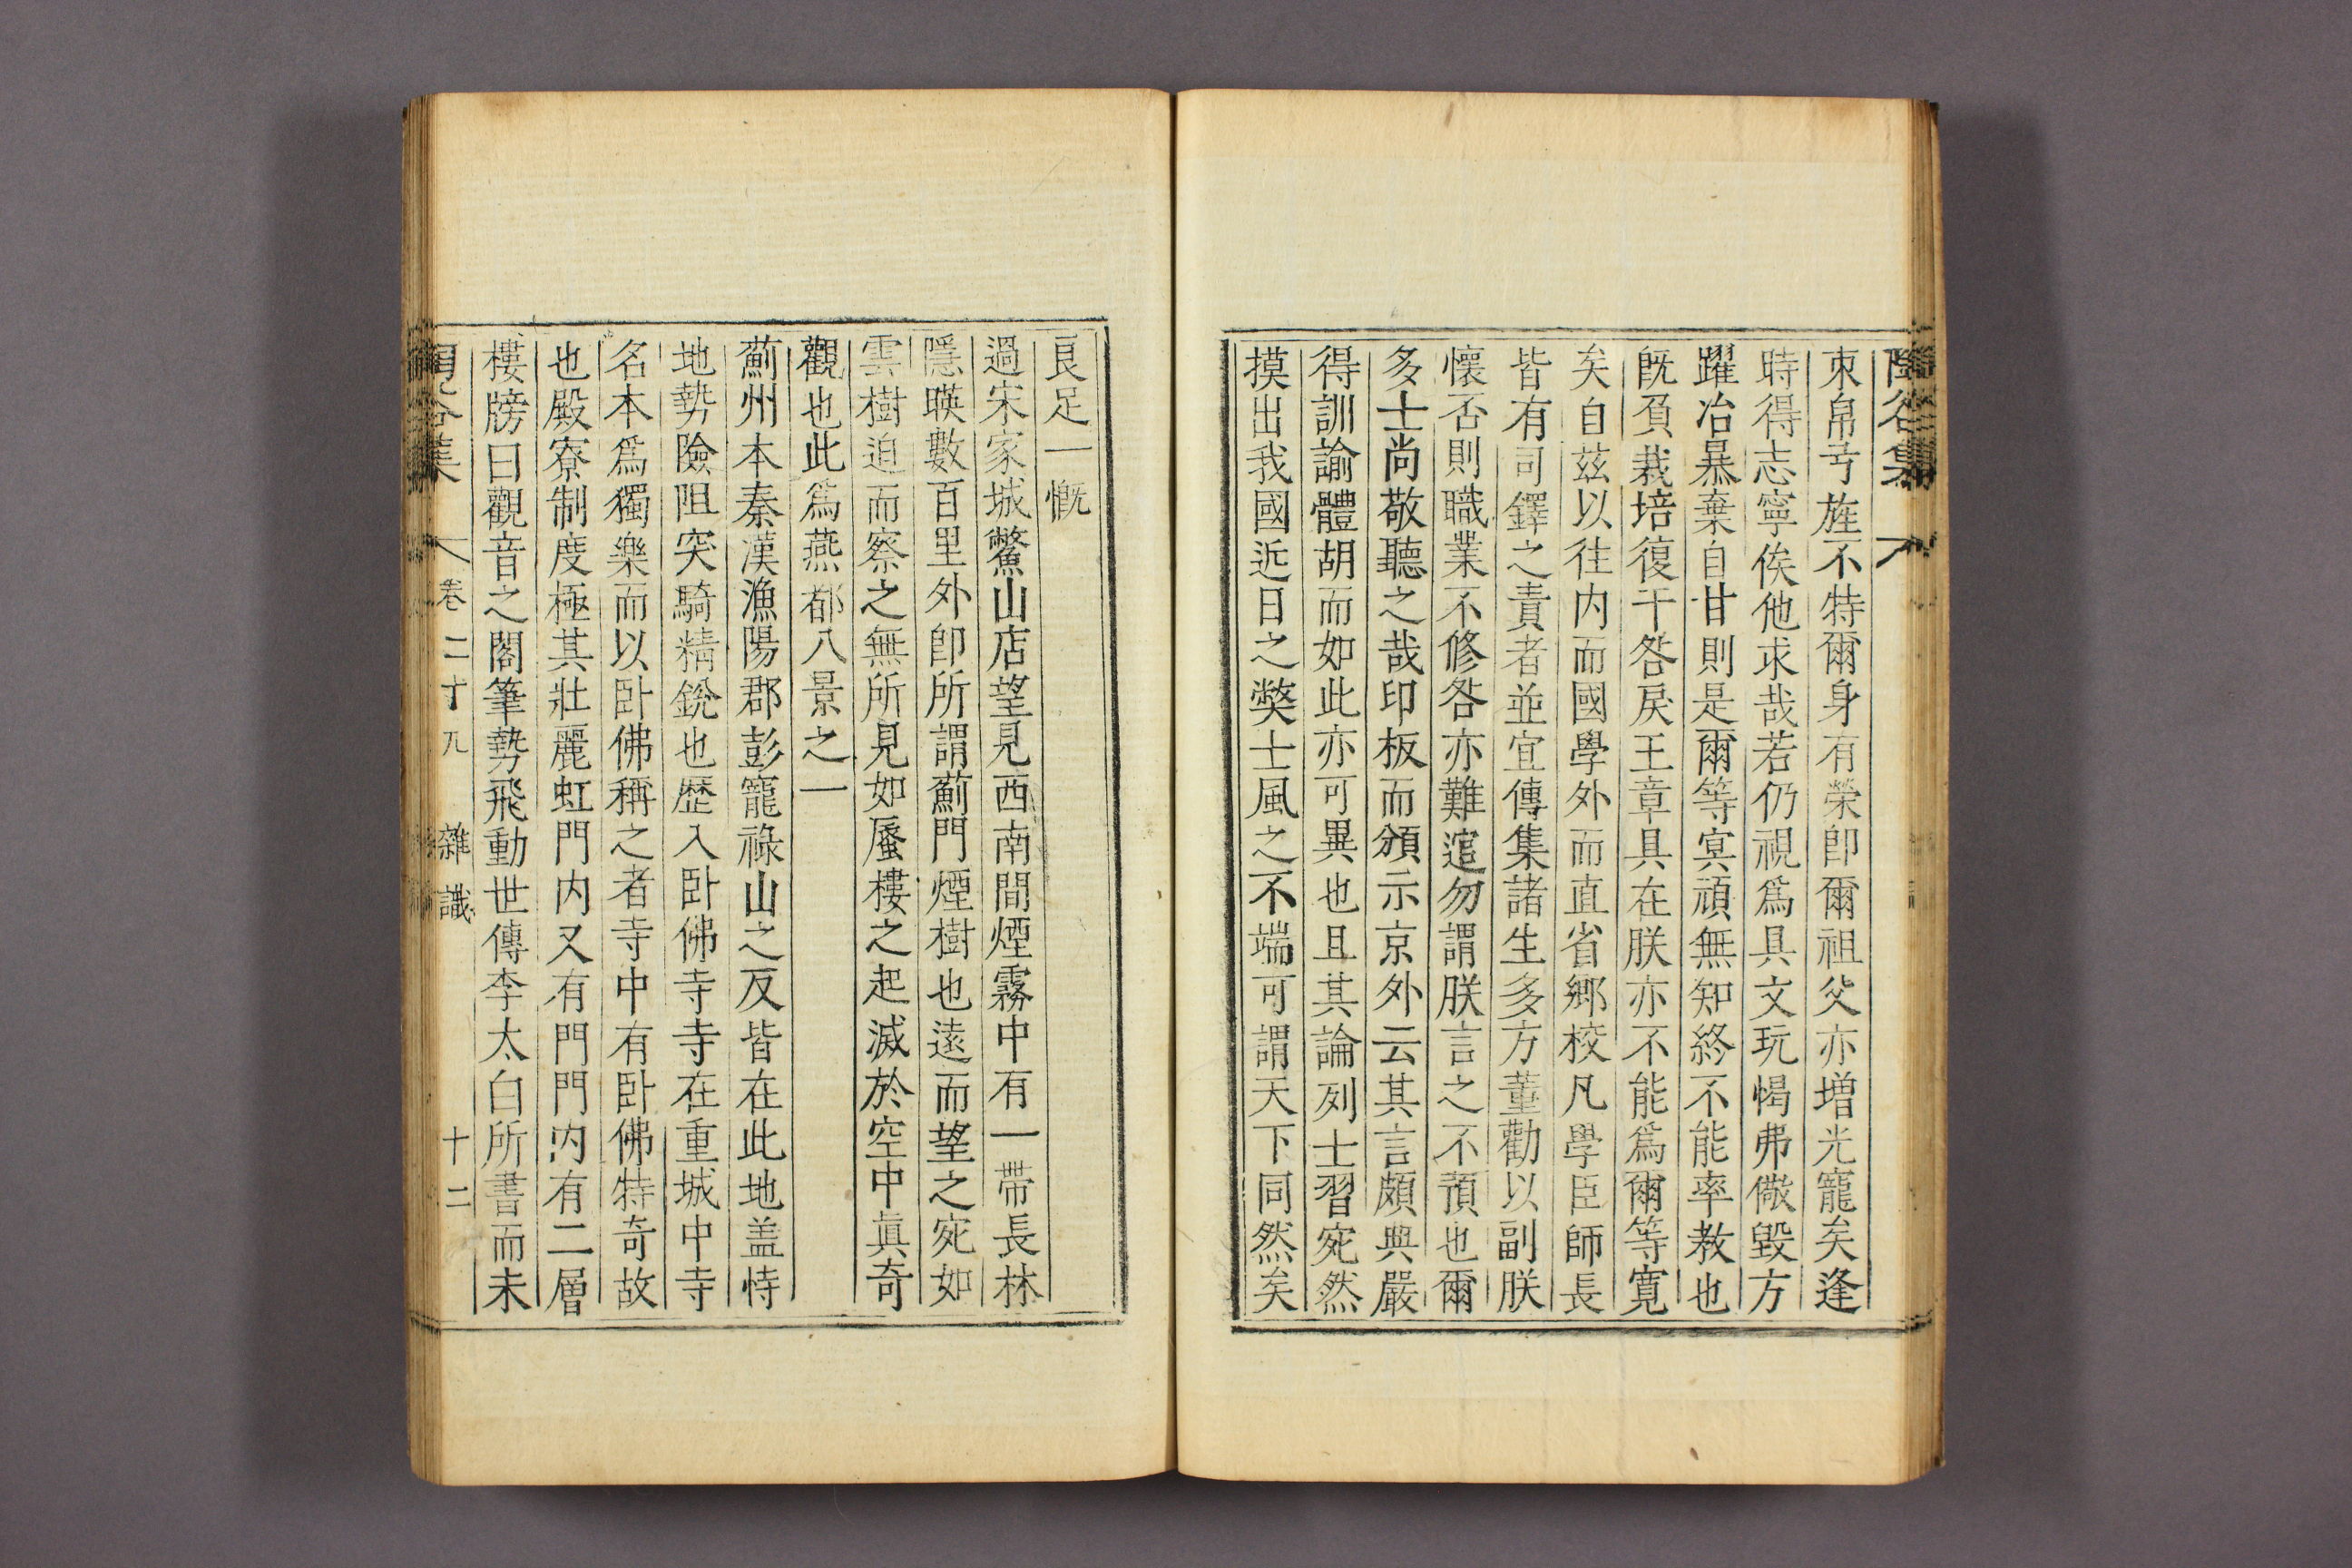 陶谷集
束帛弓旌不特爾身有榮卽爾祖父亦增光寵矣逢
時得志寧俟他求哉若仍視爲具文玩愒弗儆毀方
躍冶暴棄自甘則是爾等㝠頑無知終不能率教也
旣負栽培復干咎戾王章具在朕亦不能爲爾等寬
矣自茲以往内而國學外而直省鄕校凡學臣師長
皆有司鐸之責者並宜傳集諸生多方董勸以副朕
懷否則職業不修咎亦難逭勿謂朕言之不預也爾
多士尚敬聽之哉印板而頒示京外云其言頗典嚴
得訓諭體胡而如此亦可異也且其論列士習宛然
摸出我國近日之獘士風之不端可謂天下同然矣
良足一慨
過宋家城鱉山店望見西南間煙霧中有一帶長林
隱暎數百里外卽所謂薊門煙樹也遠而望之宛如
雲樹迫而察之無所見如蜃樓之起滅於空中眞奇
觀也此爲燕都八景之一
薊州本秦漢漁陽郡彭寵祿山之反皆在此地盖恃
地勢險阻突騎精銳也歷入卧佛寺寺在重城中寺
名本爲獨樂而以卧佛稱之者寺中有卧佛特奇故
也殿寮制度極其壯麗虹門内又有門門内有二層
樓牓曰觀音之閣筆勢飛動世傳李太白所書而未
谷集 卷二十九 雜識 十二